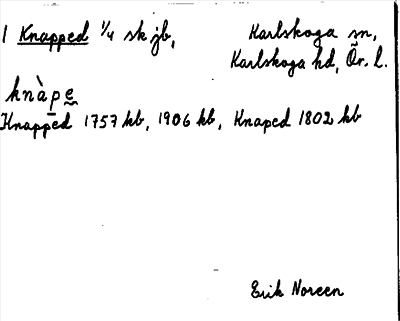 1 Knapped 1/4 sk jb,
Karlskoga sn,
Karlskoga hd, Ör. l.
knàpe
Knapped 1757 kb, 1906 kb, Knaped 1802 kb
Erik Noreen